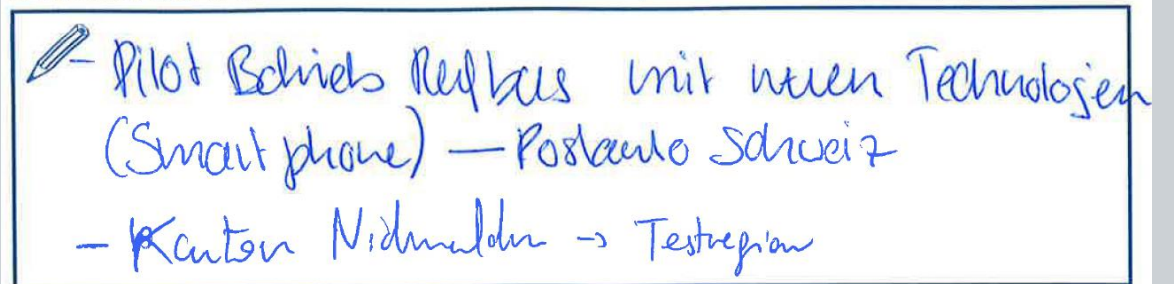 - Pilot Betrieb Rufbus mit neuen Technologien
(Smartphone) — Postauto Schweiz
- Kanton Nidwalden → Testregion